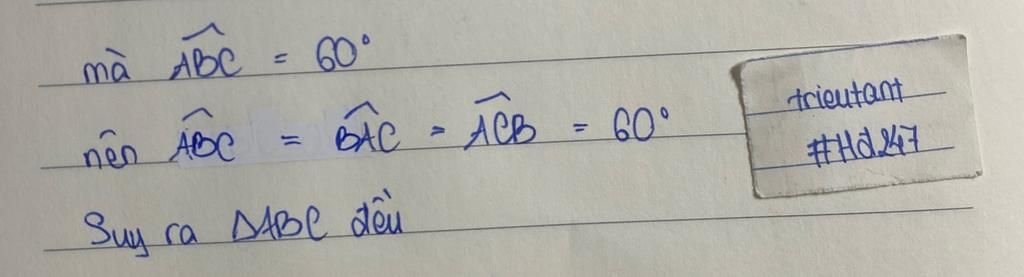 mà $\widehat{ABC}$ = 60°
nên $\widehat{ABC}$ = $\widehat{BAC}$ = $\widehat{ACB}$ = 60°
Suy ra ΔABC đều
trieutant
#Hd247